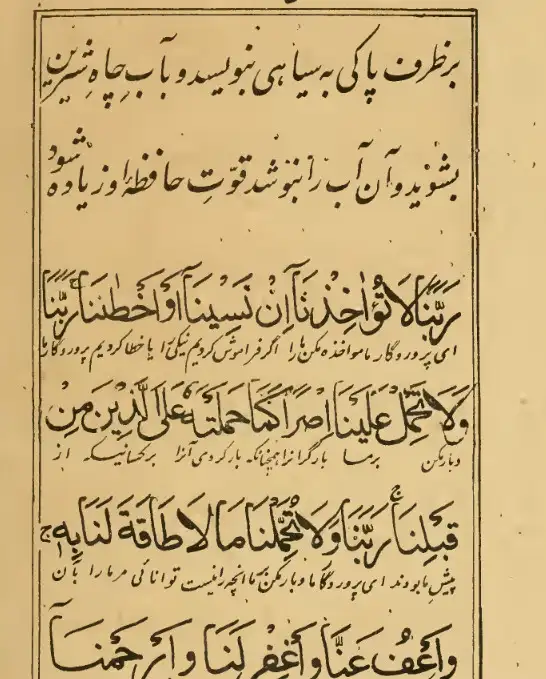 بر ظرف پاکی به سیاهی بنویسد و بآبِ چاهِ شیرین
بشوید و آن آب را بنوشد قوّتِ حافظهٔ او زیاده شود
رَبَّنَا لَا تُؤَاخِذْنَآ اِنْ نَسِيْنَآ اَوْ اَخْطَئْنَا رَبَّنَا
ای پروردگار ما مواخذه مکن ما را اگر فراموش کردیم نیکی را یا خطا کردیم پروردگار ما
وَلَا تَحْمِلْ عَلَيْنَا اِصْرًا كَمَا حَمَلْتَهٗ عَلَى الَّذِيْنَ مِنْ
و بار مکن بر ما بار گران را همچنانکه بار کردی آنرا بر کسانیکه از
قَبْلِنَا رَبَّنَا وَلَا تُحَمِّلْنَا مَا لَا طَاقَةَ لَنَا بِهٖ ج
پیش ما بودند ای پروردگار ما و بار مکن بما انچه را نیست توانائی مر ما را بآن
وَاعْفُ عَنَّا وَاغْفِرْ لَنَا وَارْحَمْنَآ